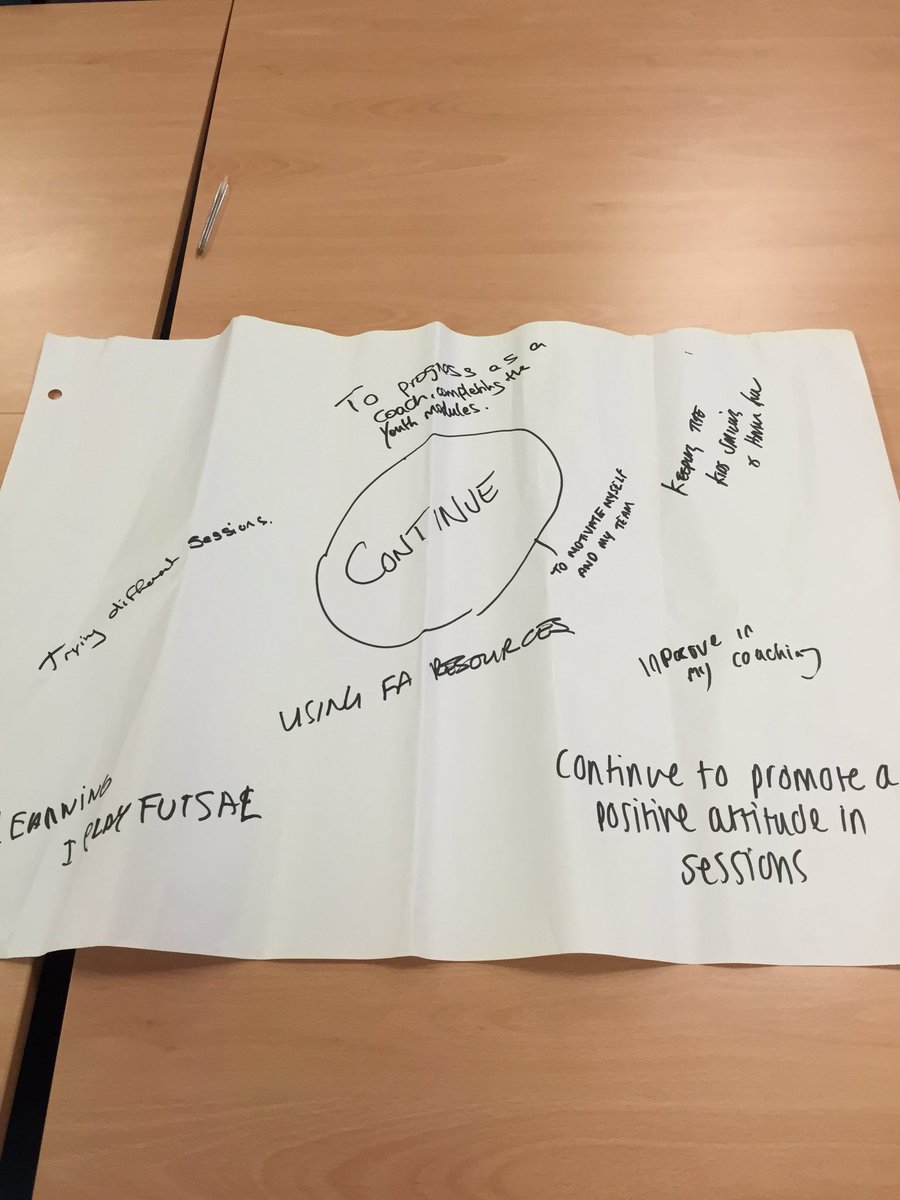 To progress as a
coach, completing the
Youth modules.
KEEPING THE
KIDS SMILING
& HAVING FUN
CONTINUE
TO MOTIVATE MYSELF
AND MY TEAM
Trying different sessions.
USING FA RESOURCES
Improve in
my coaching
LEARNING
I PLAY FUTSAL
Continue to promote a
positive attitude in
sessions